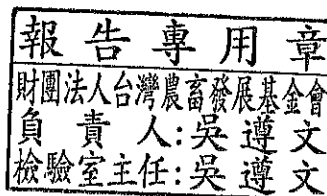 報告專用章
財團法人台灣農畜發展基金會
負責人:吳遵文
檢驗室主任:吳遵文